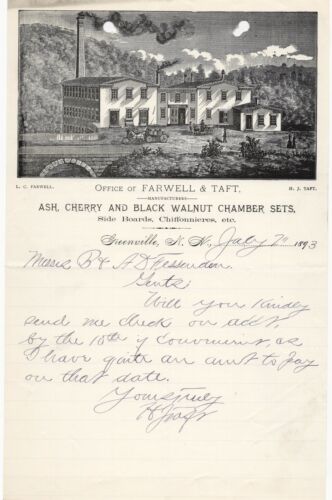 L. C. FARWELL.
OFFICE OF FARWELL & TAFT,
H. J. TAFT.
MANUFACTURERS
ASH, CHERRY AND BLACK WALNUT CHAMBER SETS,
Side Boards, Chiffonnieres, etc.
Greenville, N. H., July 7th 1893
Messrs B & A D Fessenden.
Gents:
Will you Kindly
send me check on acct,
by the 10th if convenient, as
I have quite an amt to pay
on that date.
Yours truly
H J Taft